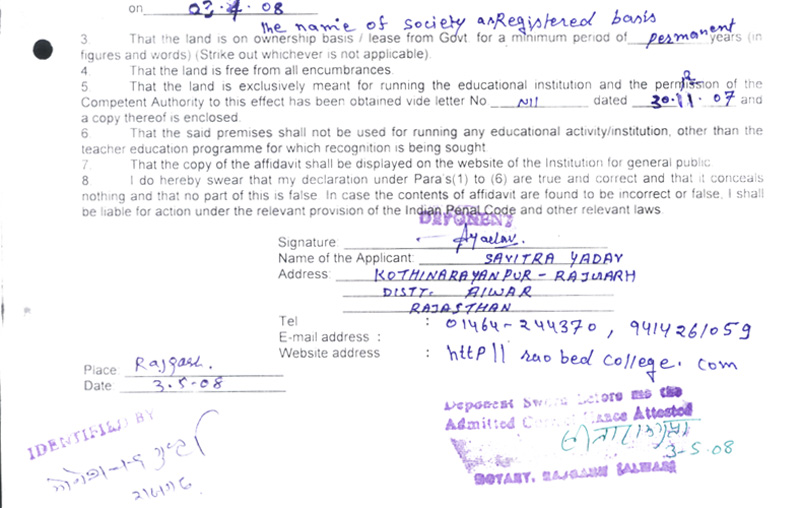 on 03.4.08
the name of society as Registered basis
3. That the land is on ownership basis / lease from Govt. for a minimum period of permanent years (in
figures and words) (Strike out whichever is not applicable).
4. That the land is free from all encumbrances.
5. That the land is exclusively meant for running the educational institution and the permission of the
Competent Authority to this effect has been obtained vide letter No Nil dated 30.11.07 and
a copy thereof is enclosed.
6. That the said premises shall not be used for running any educational activity/institution, other than the
teacher education programme for which recognition is being sought
7. That the copy of the affidavit shall be displayed on the website of the Institution for general public
8. I do hereby swear that my declaration under Para's(1) to (6) are true and correct and that it conceals
nothing and that no part of this is false. In case the contents of affidavit are found to be incorrect or false, I shall
be liable for action under the relevant provision of the Indian Penal Code and other relevant laws
DEPONENT
Signature:
Name of the Applicant: SAVITRA YADAV
Address: KOTHINARAYANPUR - RAJGARH
DISTT. AlWAR
RAJASTHAN
Tel : 01464-244370, 9414261059
E-mail address :
Website address : http|| rao bed college. com
Place: Rajgarh.
Date: 3.5.08
IDENTIFIED BY
Deponent Sword before me the
Admitted Attested
3-5-08
NOTARY, RAJGARH (ALWAR)